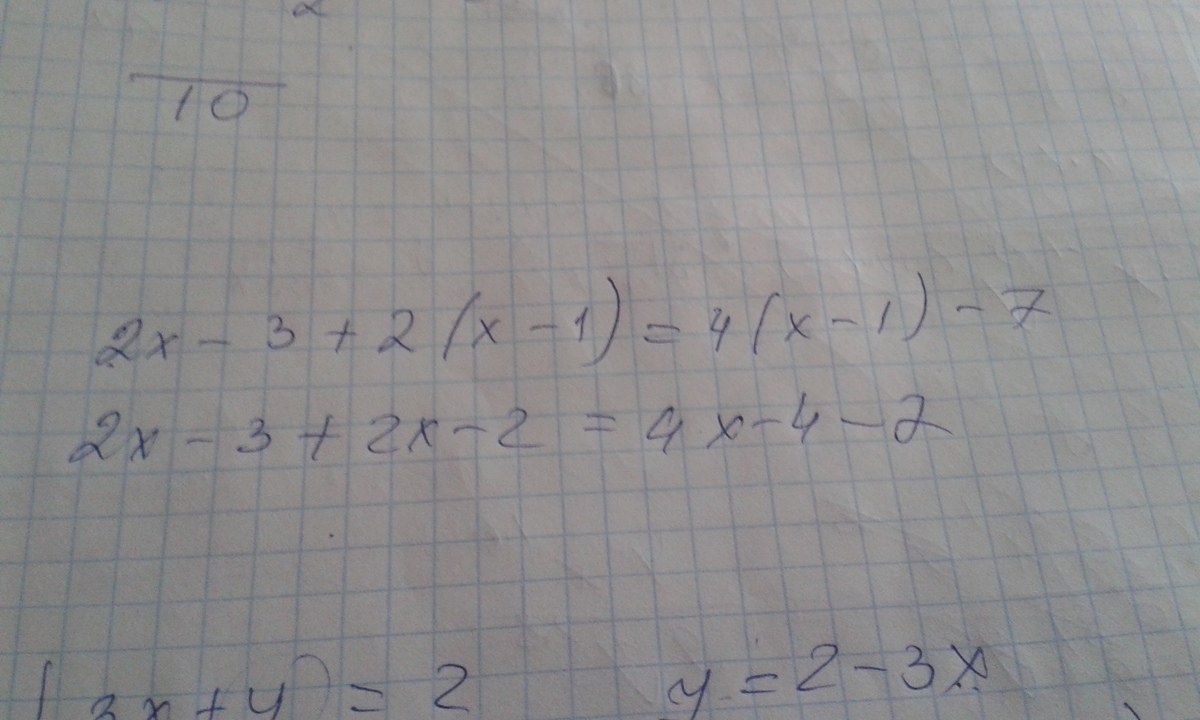 2
10
2x - 3 + 2(x - 1) = 4(x - 1) - 7
2x - 3 + 2x - 2 = 4x - 4 - 7
3x + y) = 2 y = 2 - 3x